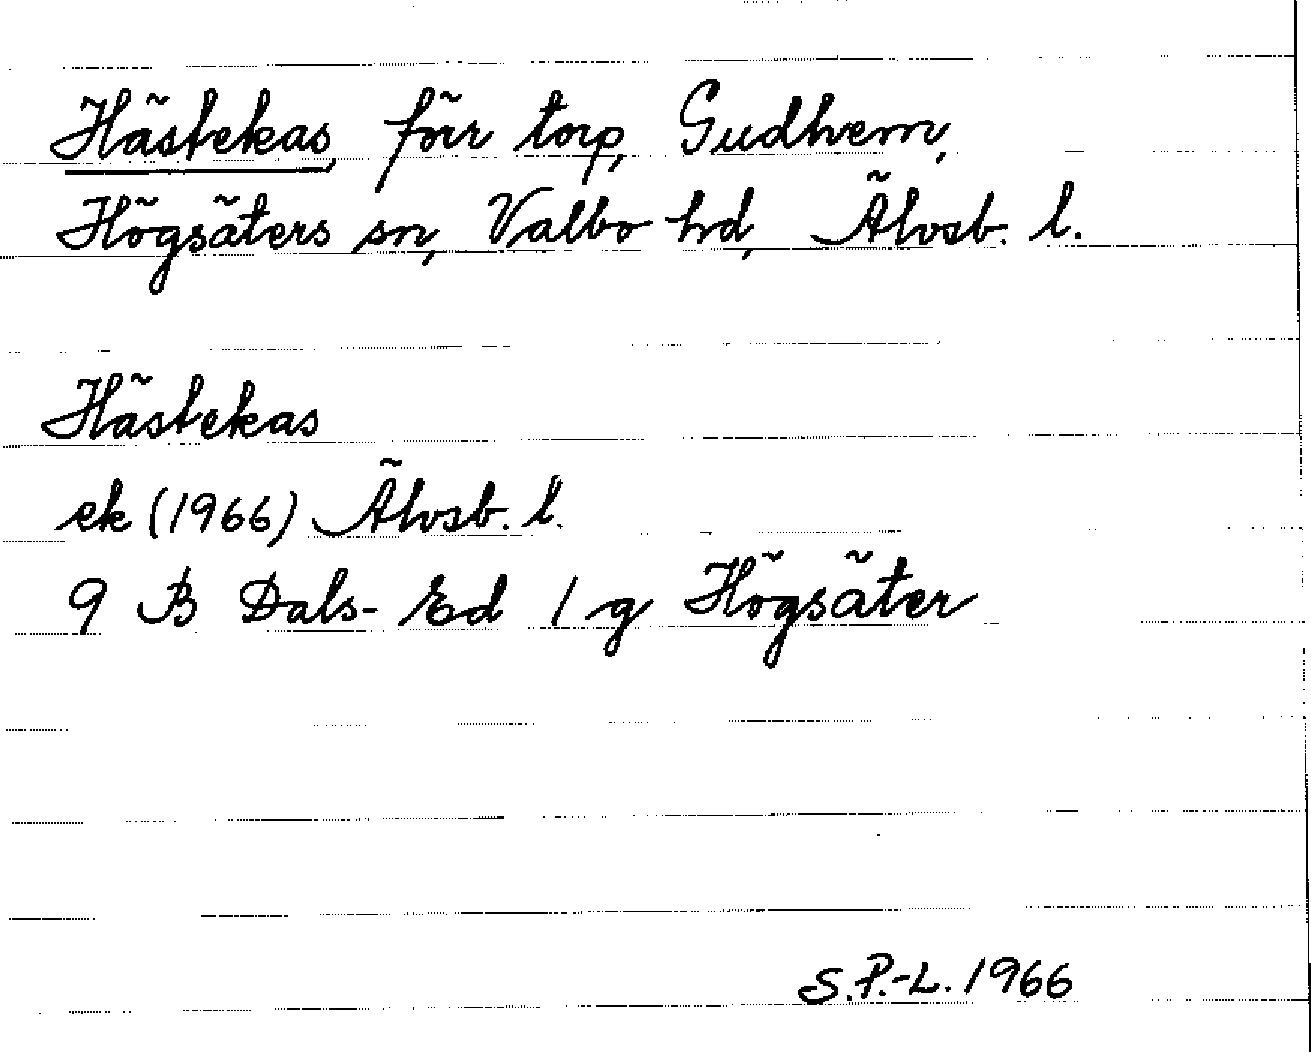 Hästekas, förr torp, Gudhem,
Högsäters sn, Valbo hd, Älvsb. l.
Hästekas
ek (1966) Älvsb. l.
9 B Dals-Ed 1 g Högsäter
S.P.-L. 1966